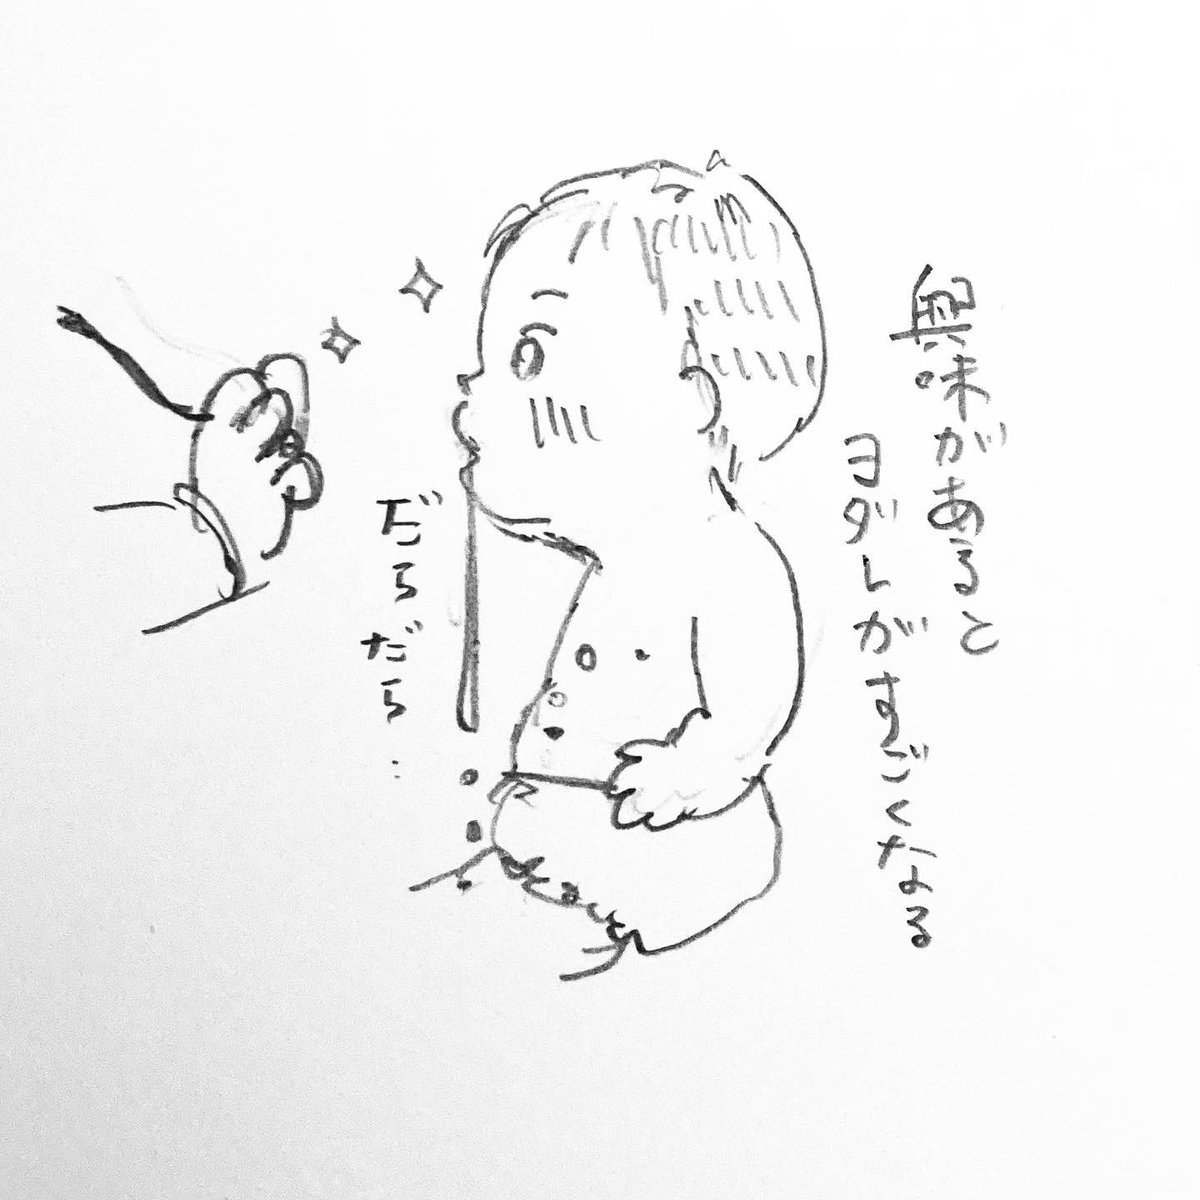 興味があると
ヨダレがすごくなる
だらだら…